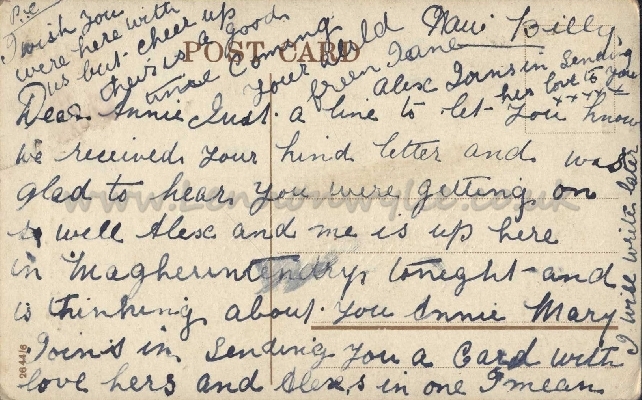 P.S.
I wish you
were here with
us but cheer up
there is a good
time coming
POST CARD
your old
Green Lane
Navi Billy
Alex Joins in Sending
his love to you
x x x x x
Dear Annie Just a line to let you know
we received your kind letter and was
glad to hear you were getting on
so well Alex and me is up here
in Magherintendry tonight and
is thinking about you Annie Mary
Joins in Sending you a Card with
love hers and Alexs in one I mean
I will write later
2644/8